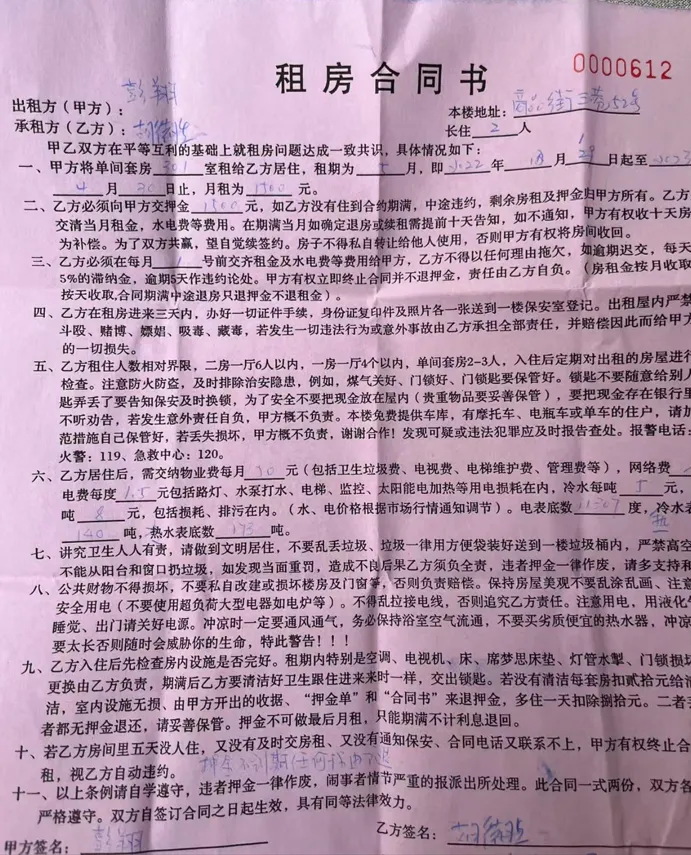 租房合同书
0000612
出租方（甲方）：彭翔
本楼地址：
承租方（乙方）：
长住 2 人
甲乙双方在平等互利的基础上就租房问题达成一致共识，具体情况如下：
一、甲方将单间套房 301 室租给乙方居住，租期为 月，即 2022 年 月 日起至 2023
4 月 30 日止，月租为 1500 元。
二、乙方必须向甲方交押金 1500 元，如乙方没有住到合约期满，中途违约，剩余房租及押金归甲方所有。乙方
交清当月租金，水电费等费用。在期满当月如确定退房或续租需提前十天告知，如不通知，甲方有权收十天房
为补偿。为了双方共赢，望自觉续签约。房子不得私自转让给他人使用，否则甲方有权将房间收回。
三、乙方必须在每月 1 号前交齐租金及水电费等费用给甲方，乙方不得以任何理由拖欠，如逾期迟交，每天
5%的滞纳金，逾期5天作违约论处。甲方有权立即终止合同并不退押金，责任由乙方自负。（房租金按月收取
按天收取,合同期满中途退房只退押金不退租金）。
四、乙方在租房进来三天内，办好一切证件手续，身份证复印件及照片各一张送到一楼保安室登记。出租屋内严禁
斗殴、赌博、嫖娼、吸毒、藏毒，若发生一切违法行为或意外事故由乙方承担全部责任，并赔偿因此而给甲方
的一切损失。
五、乙方租住人数相对界限，二房一厅6人以内，一房一厅4个以内，单间套房2-3人，入住后定期对出租的房屋进行
检查。注意防火防盗，及时排除治安隐患，例如，煤气关好、门锁好、门锁匙要保管好。锁匙不要随意给别人
匙弄丢了要告知保安及时换锁，为了安全不要把现金放在屋内（贵重物品要妥善保管），要把现金存在银行里
不听劝告，若发生意外责任自负，甲方概不负责。本楼免费提供车库，有摩托车、电瓶车或单车的住户，请加
范措施自己保管好，若丢失损坏，甲方概不负责，谢谢合作！发现可疑或违法犯罪应及时报告查处。报警电话：
火警：119、急救中心：120。
六、乙方居住后，需交纳物业费每月 30 元（包括卫生垃圾费、电视费、电梯维护费、管理费等），网络费
电费每度 1.5 元包括路灯、水泵打水、电梯、监控、太阳能电加热等用电损耗在内，冷水每吨 5 元，
吨 8 元，包括损耗、排污在内。（水、电价格根据市场行情通知调节）。电表底数 度，冷水表
吨，热水表底数 173 吨。
热
七、讲究卫生人人有责，请做到文明居住，不要乱丢垃圾、垃圾一律用方便袋装好送到一楼垃圾桶内，严禁高空
不能从阳台和窗口扔垃圾，如发现当面重罚，造成不良后果乙方须负全责，违者押金一律作废，请多支持和
八、公共财物不得损坏，不要私自改建或损坏楼房及门窗等，否则负责赔偿。保持房屋美观不要乱涂乱画、注意
安全用电（不要使用超负荷大型电器如电炉等）。不得乱拉接电线，否则追究乙方责任。注意用电，用液化气
睡觉、出门请关好电源。冲凉时一定要通风通气，务必保持浴室空气流通，不要买劣质便宜的热水器，冲凉
要太长否则随时会威胁你的生命，特此警告！！！
九、乙方入住后先检查房内设施是否完好。租期内特别是空调、电视机、床、席梦思床垫、灯管水掣、门锁损坏
更换由乙方负责，期满后乙方要清洁好卫生跟住进来来时一样，交出锁匙。若没有清洁每套房扣贰拾元给清
洁，室内设施无损、由甲方开出的收据、“押金单”和“合同书”来退押金，多住一天扣除捌拾元。二者
者都无押金退还，请妥善保管。押金不可做最后月租，只能期满不计利息退回。
十、若乙方房间里五天没人住，又没有及时交房租、又没有通知保安、合同电话又联系不上，甲方有权终止合
租，视乙方自动违约。
押金不到期任何理由不退
十一、以上条例请自学遵守，违者押金一律作废，闹事者情节严重的报派出所处理。此合同一式两份，双方各
严格遵守。双方自签订合同之日起生效，具有同等法律效力。
甲方签名：彭翔
乙方签名：